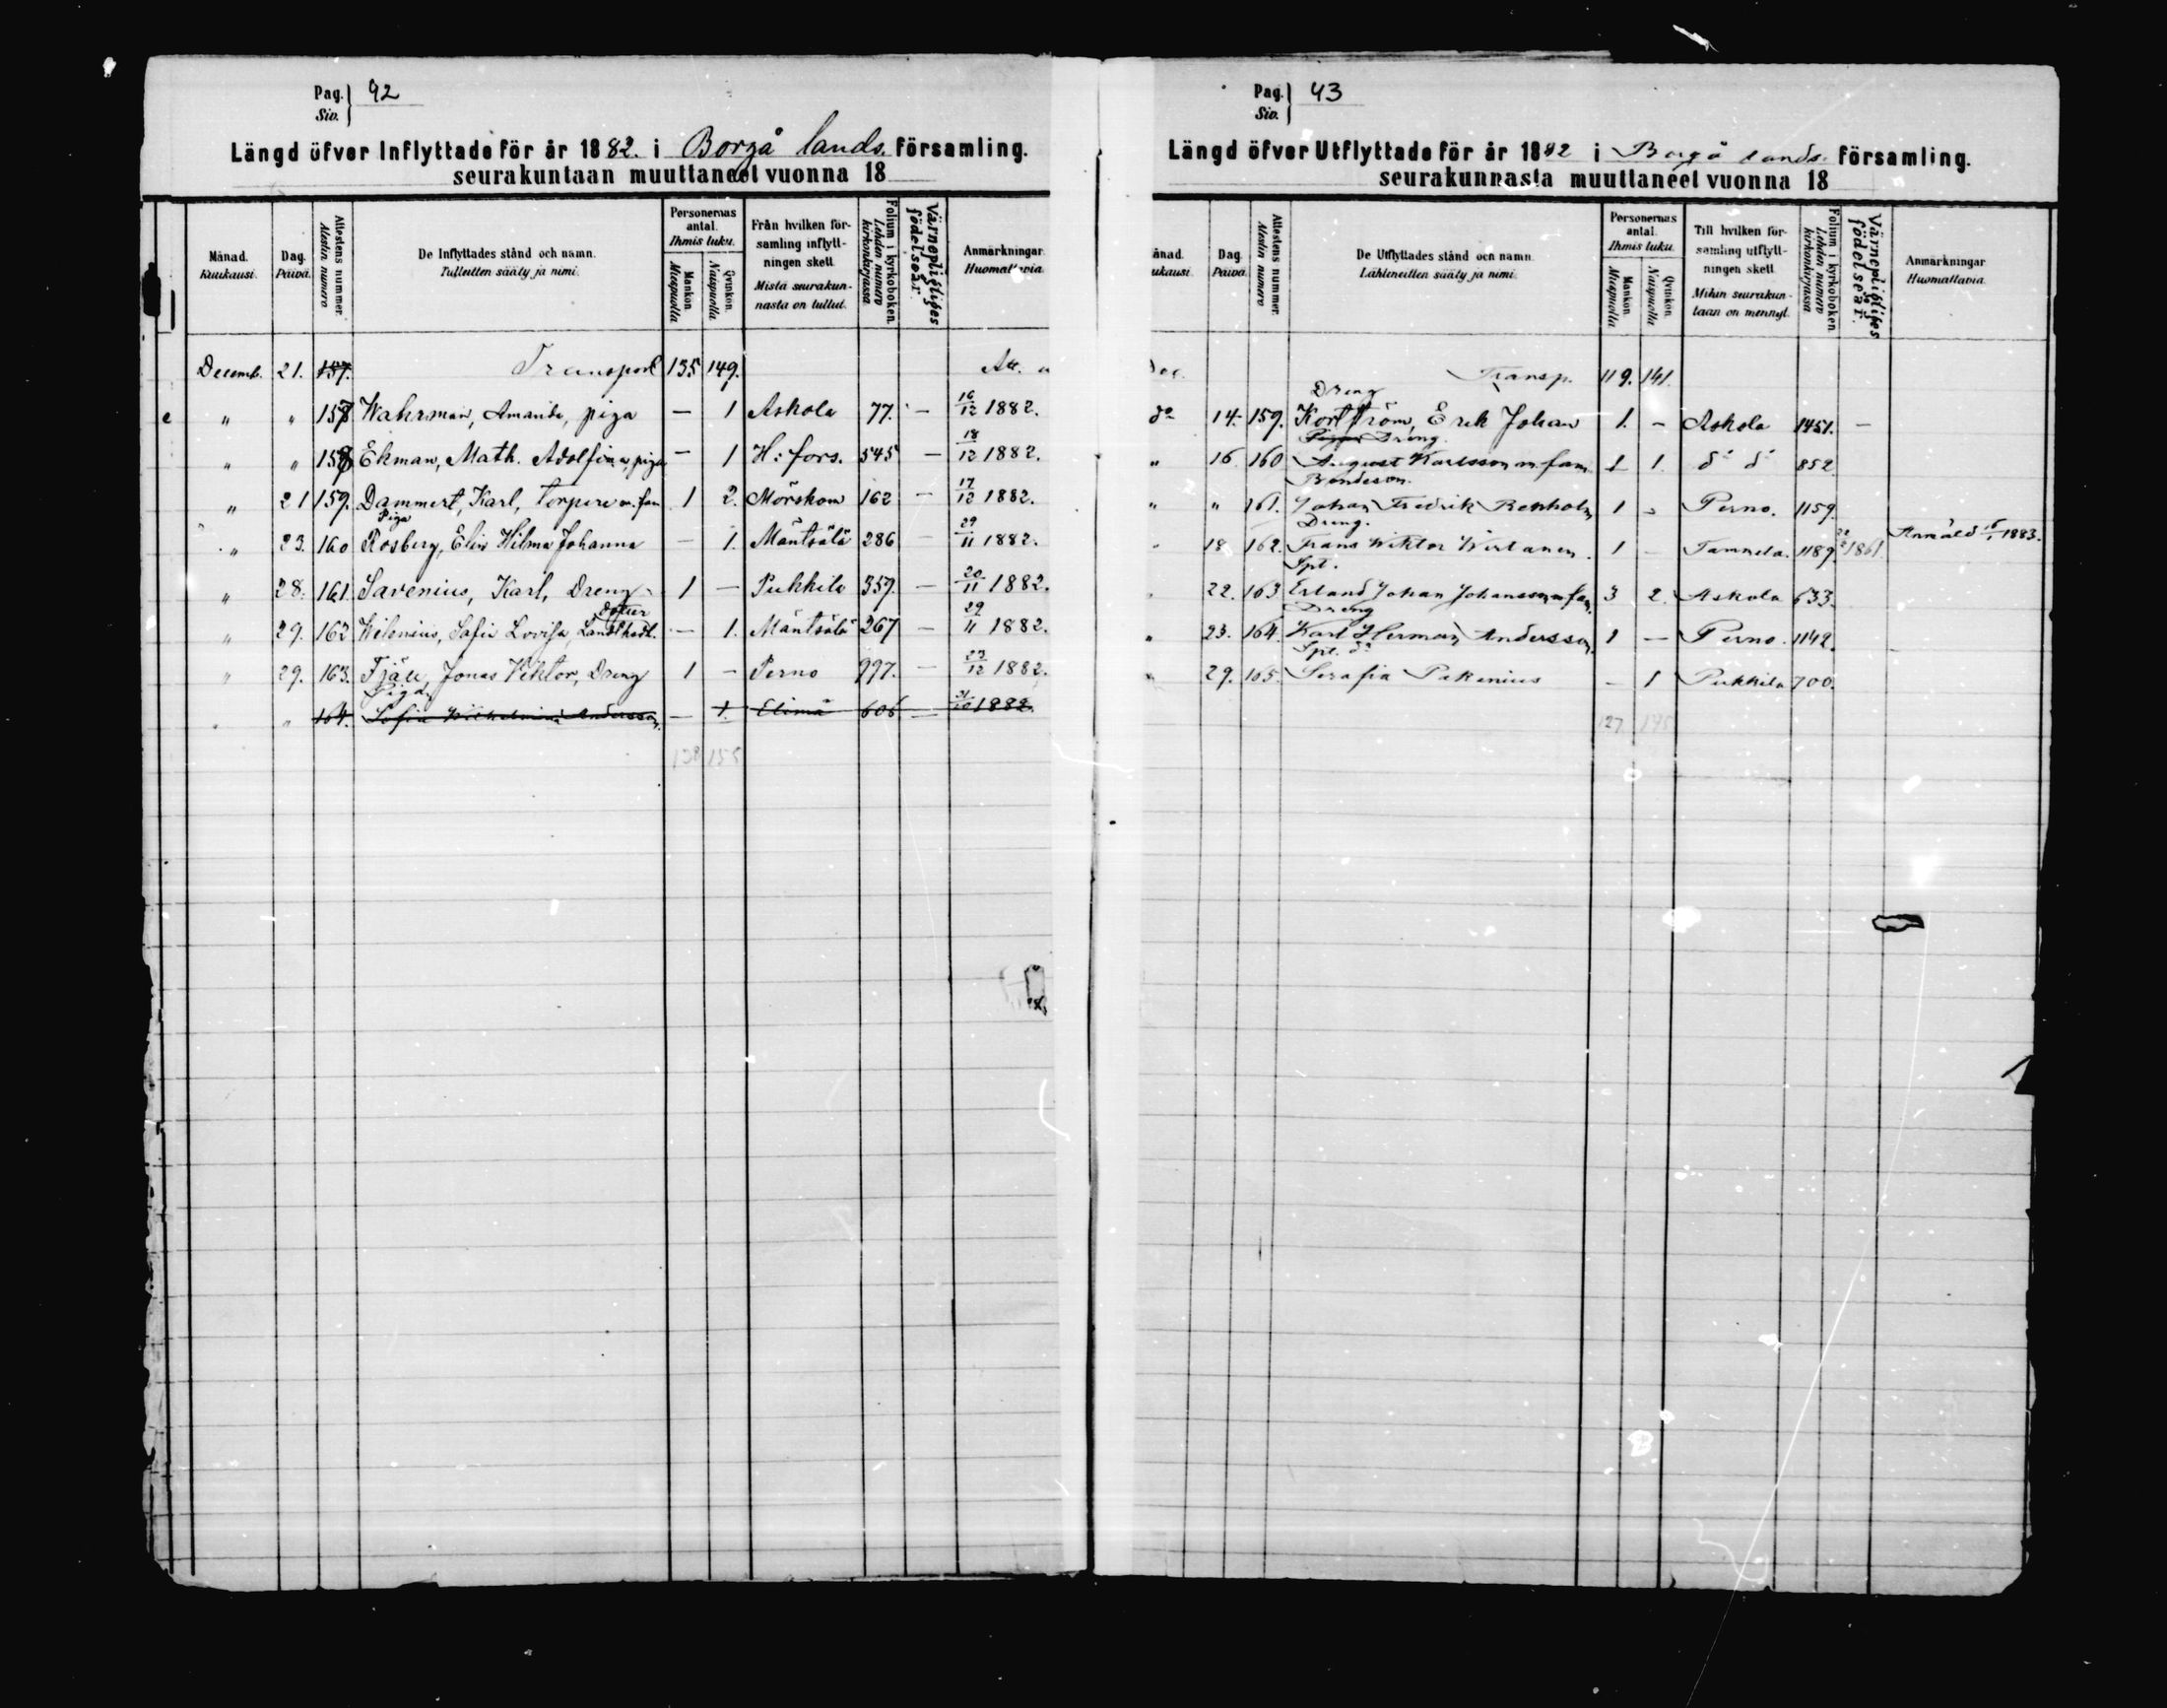 Pag. 42
Siv.
Längd öfver Inflyttade för år 1882. i Borgå lands. församling.
seurakuntaan muuttaneet vuonna 18
Månad. Kuukausi. Dag. Päivä. Attestens nummer. Atestin numero De Inflyttades stånd och namn. Tulleitten sääty ja nimi. Personernas antal. Ihmis luku. Mankön. Miespuolta Qvinkön. Naispuolta Från hvilken församling inflyttningen skett. Mistä seurakunnasta on tullut. Folium i kyrkoboken. Lehden numero kirkonkirjassa Värnepligtiges födelseår. Anmärkningar. Huomattavia
Decemb. 21. 157. Transport 135 149. Att.
" " 157 Wahrman, Amanda, piga — 1 Askola 77. — 16/12 1882.
" " 158 Ekman, Math. Adolfina, piga — 1 H:fors. 545 — 18/12 1882.
" 21 159. Dammert, Karl, Torpare m. fam 1 2. Mörskom 162 — 17/12 1882.
Piga
" 23. 160 Rosberg, Elin Hilma Johanna — 1. Mäntsälä 286 — 29/11 1882.
" 28. 161. Savenius, Karl, Dreng 1 — Pukkila 357. — 20/11 1882.
dotter
" 29. 162 Wilenius, Sofia Lovisa, Landthadl. — 1. Mäntsälä 267 — 29/11 1882.
" 29. 163. Tjäu, Jonas Viktor, Dreng 1 — Perno 997. — 23/12 1882.
Piga
" " 164. Sofia Wilhelmina Andersson, — 1. Elimä 606 — 21/10 1882.
138 155
Pag. 43
Siv.
Längd öfver Utflyttade för år 1882 i Borgå lands. församling.
seurakunnasta muuttaneet vuonna 18
ånad. ukausi. Dag. Päivä. Attestens nummer. Atestin numero De Utflyttades stånd och namn. Lähteneitten sääty ja nimi. Personernas antal. Ihmis luku. Mankön. Miespuolta Qvinkön. Naispuolta Till hvilken församling utflyttningen skett. Mihin seurakuntaan on mennyt. Folium i kyrkoboken. Lehden numero kirkonkirjassa Värnepligtiges födelseår. Anmärkningar. Huomattavia.
Dec. Transp. 119. 141.
Dreng
do 14. 159. Kortström, Erik Johan 1. — Askola 1451. —
Dreng.
" 16 160 August Karlsson m. fam 1 1. do do 852
Bondeson.
" " 161. Johan Fredrik Renholm 1 — Perno. 1159.
Dreng.
" 18 162. Frans Wiktor Wirtanen. 1 — Tammela. 1189. 1861. Anmäld 1883.
Spt.
" 22. 163 Erland Johan Johansson m fam. 3 2. Askola 633.
Dreng
" 23. 164. Karl Herman Andersson, 1 — Perno. 1142.
Spt. do
" 29. 165. Serafia Pakenius — 1 Pukkila 700.
127 145